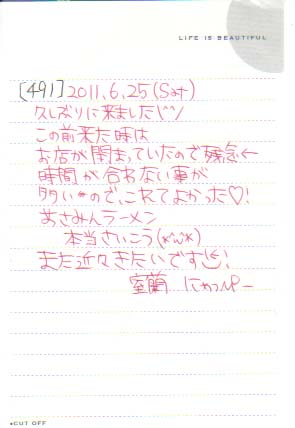 LIFE IS BEAUTIFUL
[491] 2011.6.25(Sat)
久しぶりに来ました(^^)/
この前来た時は
お店が閉まっていたので残念←
時間が合わない事が
多いので、これてよかった♡!
あさみんラーメン
本当さいこう(*´ω`*)
また近々きたいです!
室蘭 にゃっぴー
•CUT OFF